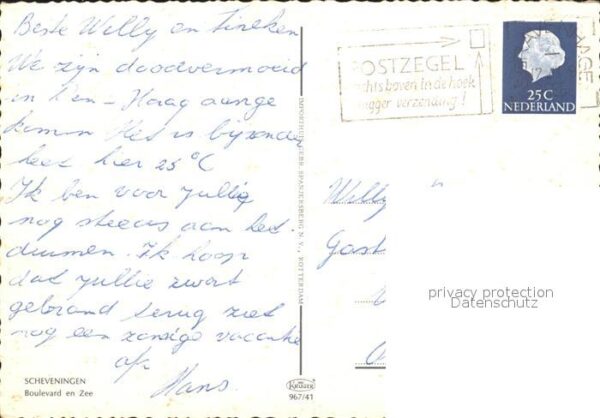 Beste Willy en Tineken
We zijn doodvermoeid
in Den-Haag aange
komen Het is bijzonder
heet hier 25°C
Ik ben voor jullie
nog steeds aan het
duimen. Ik hoop
dat jullie zwart
gebrand terug ziet
nog een zonnige vacantie
Hans
SCHEVENINGEN
Boulevard en Zee
IMPORTHUIS GEBRS. SPANJERSBERG N.V., ROTTERDAM
KRÜGER
967/41
POSTZEGEL
rechts boven in de hoek
vlugger verzending!
25C
NEDERLAND
Willy
Gast
privacy protection
Datenschutz